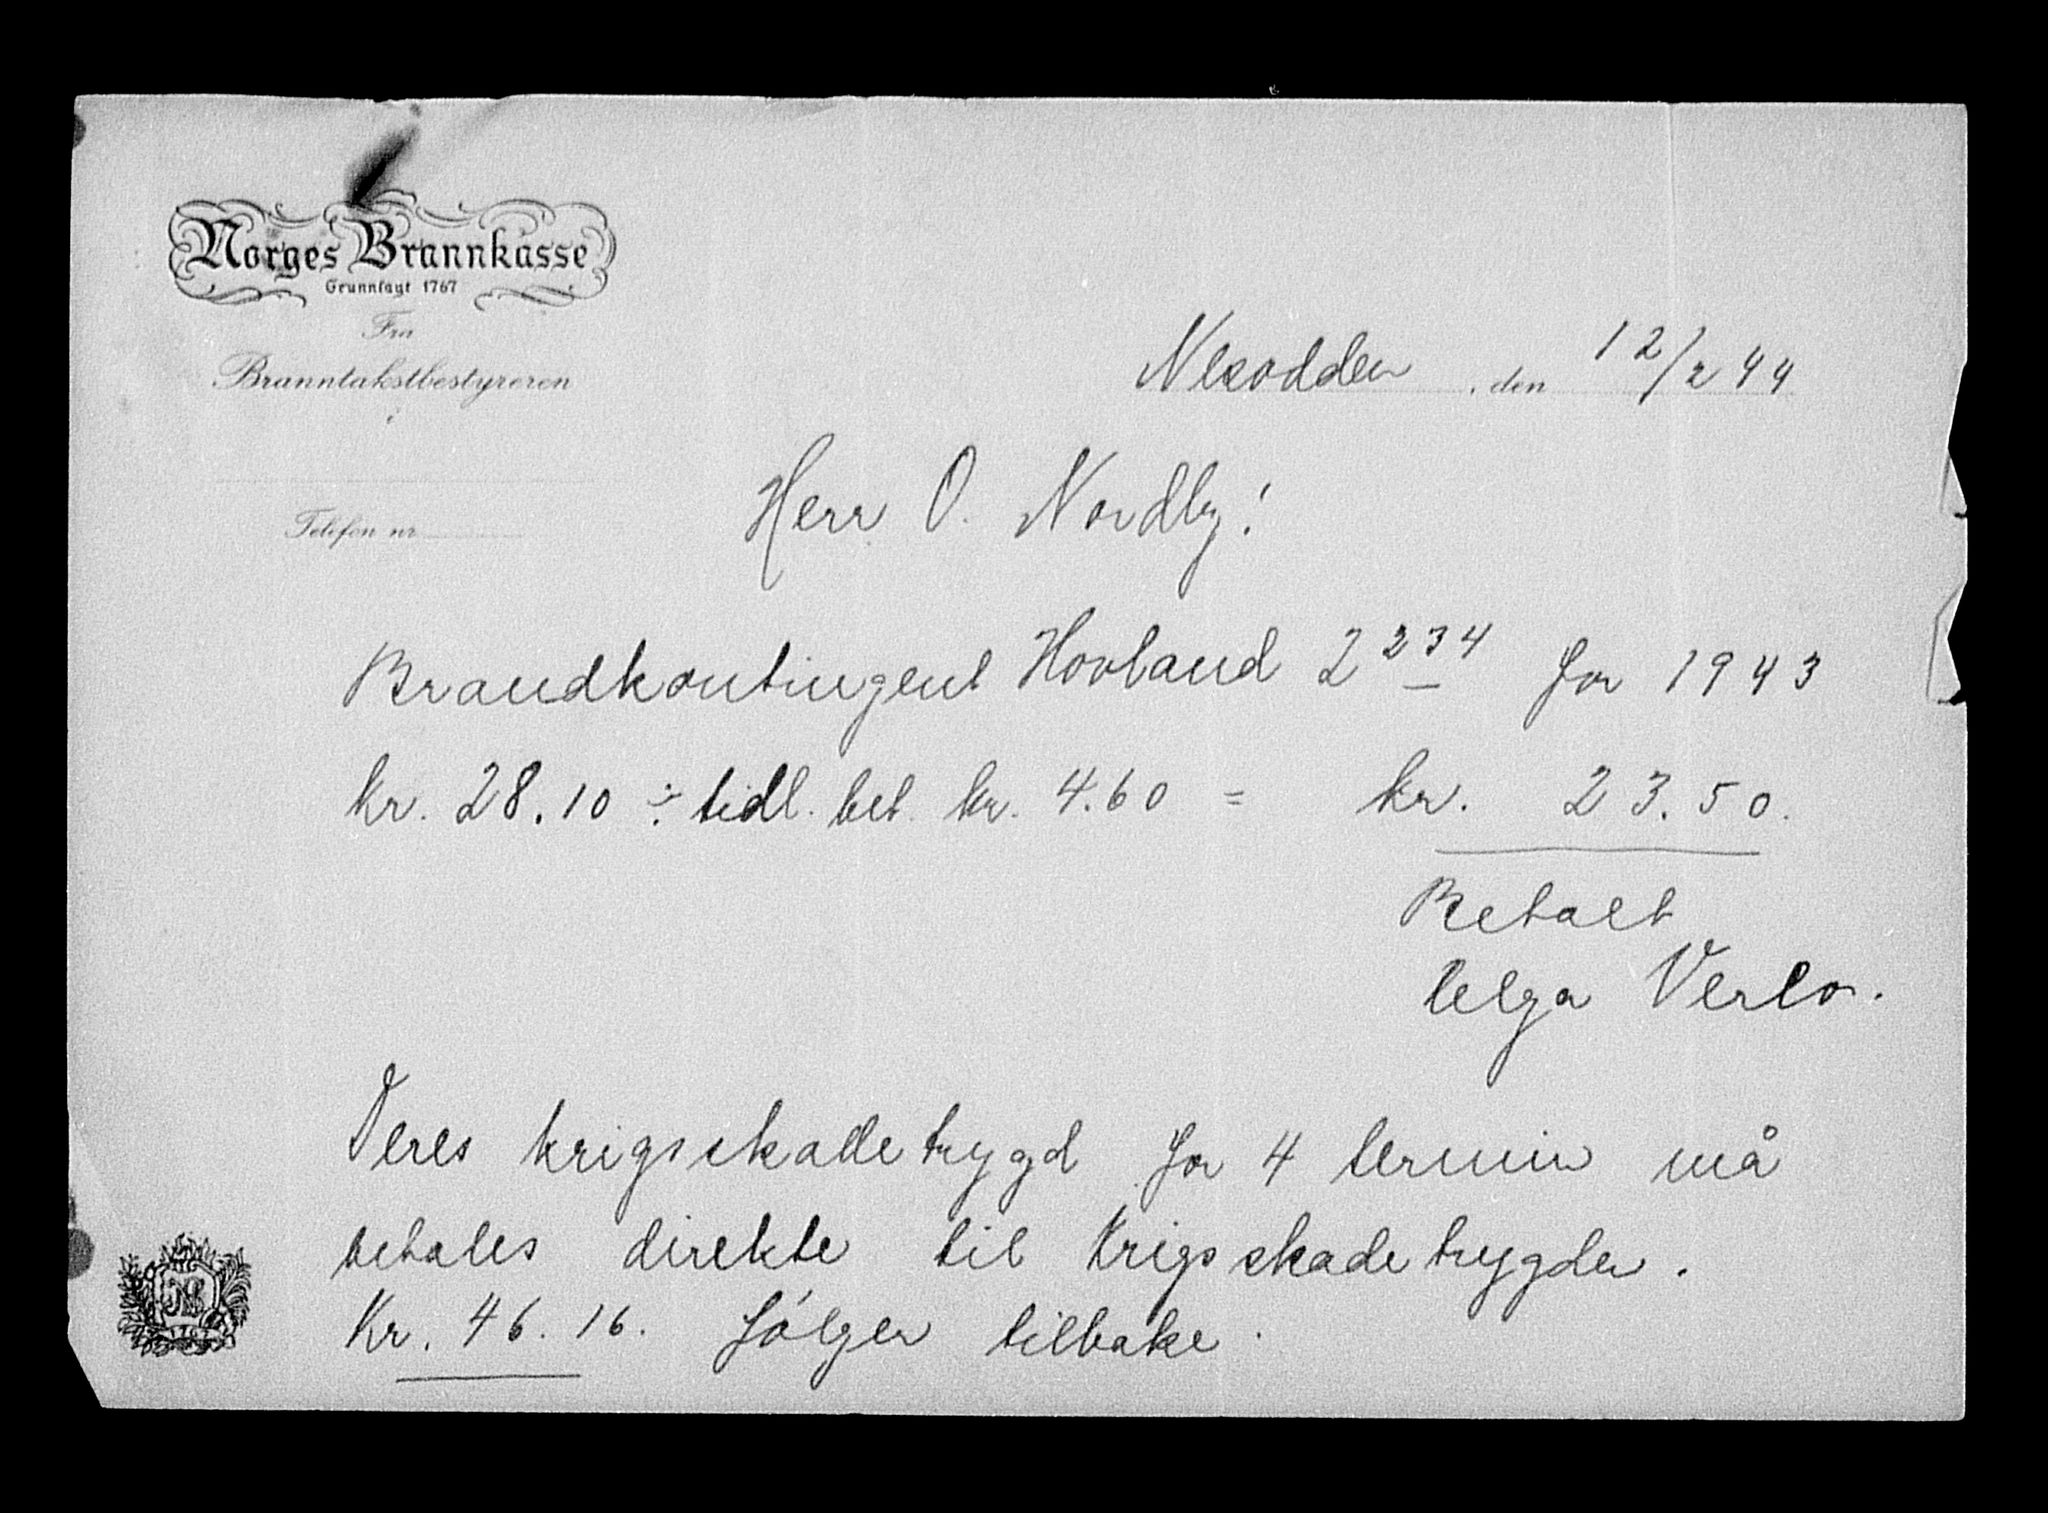 Norges Brannkasse
Grunnlagt 1767
Fra
Branntakstbestyreren
i
Telefon nr
Nesodden, den 12/2 44
Herr O. Nordby!
Brandkontingent Hovland 2234 for 1943
kr. 28.10 ÷ tidl. bet. kr. 4.60 = kr. 23.50.
Betalt
Helga Verlo.
Deres krigsskadetrygd for 4 termin må
betales direkte til Krigsskadetrygden.
Kr. 46.16. følger tilbake.